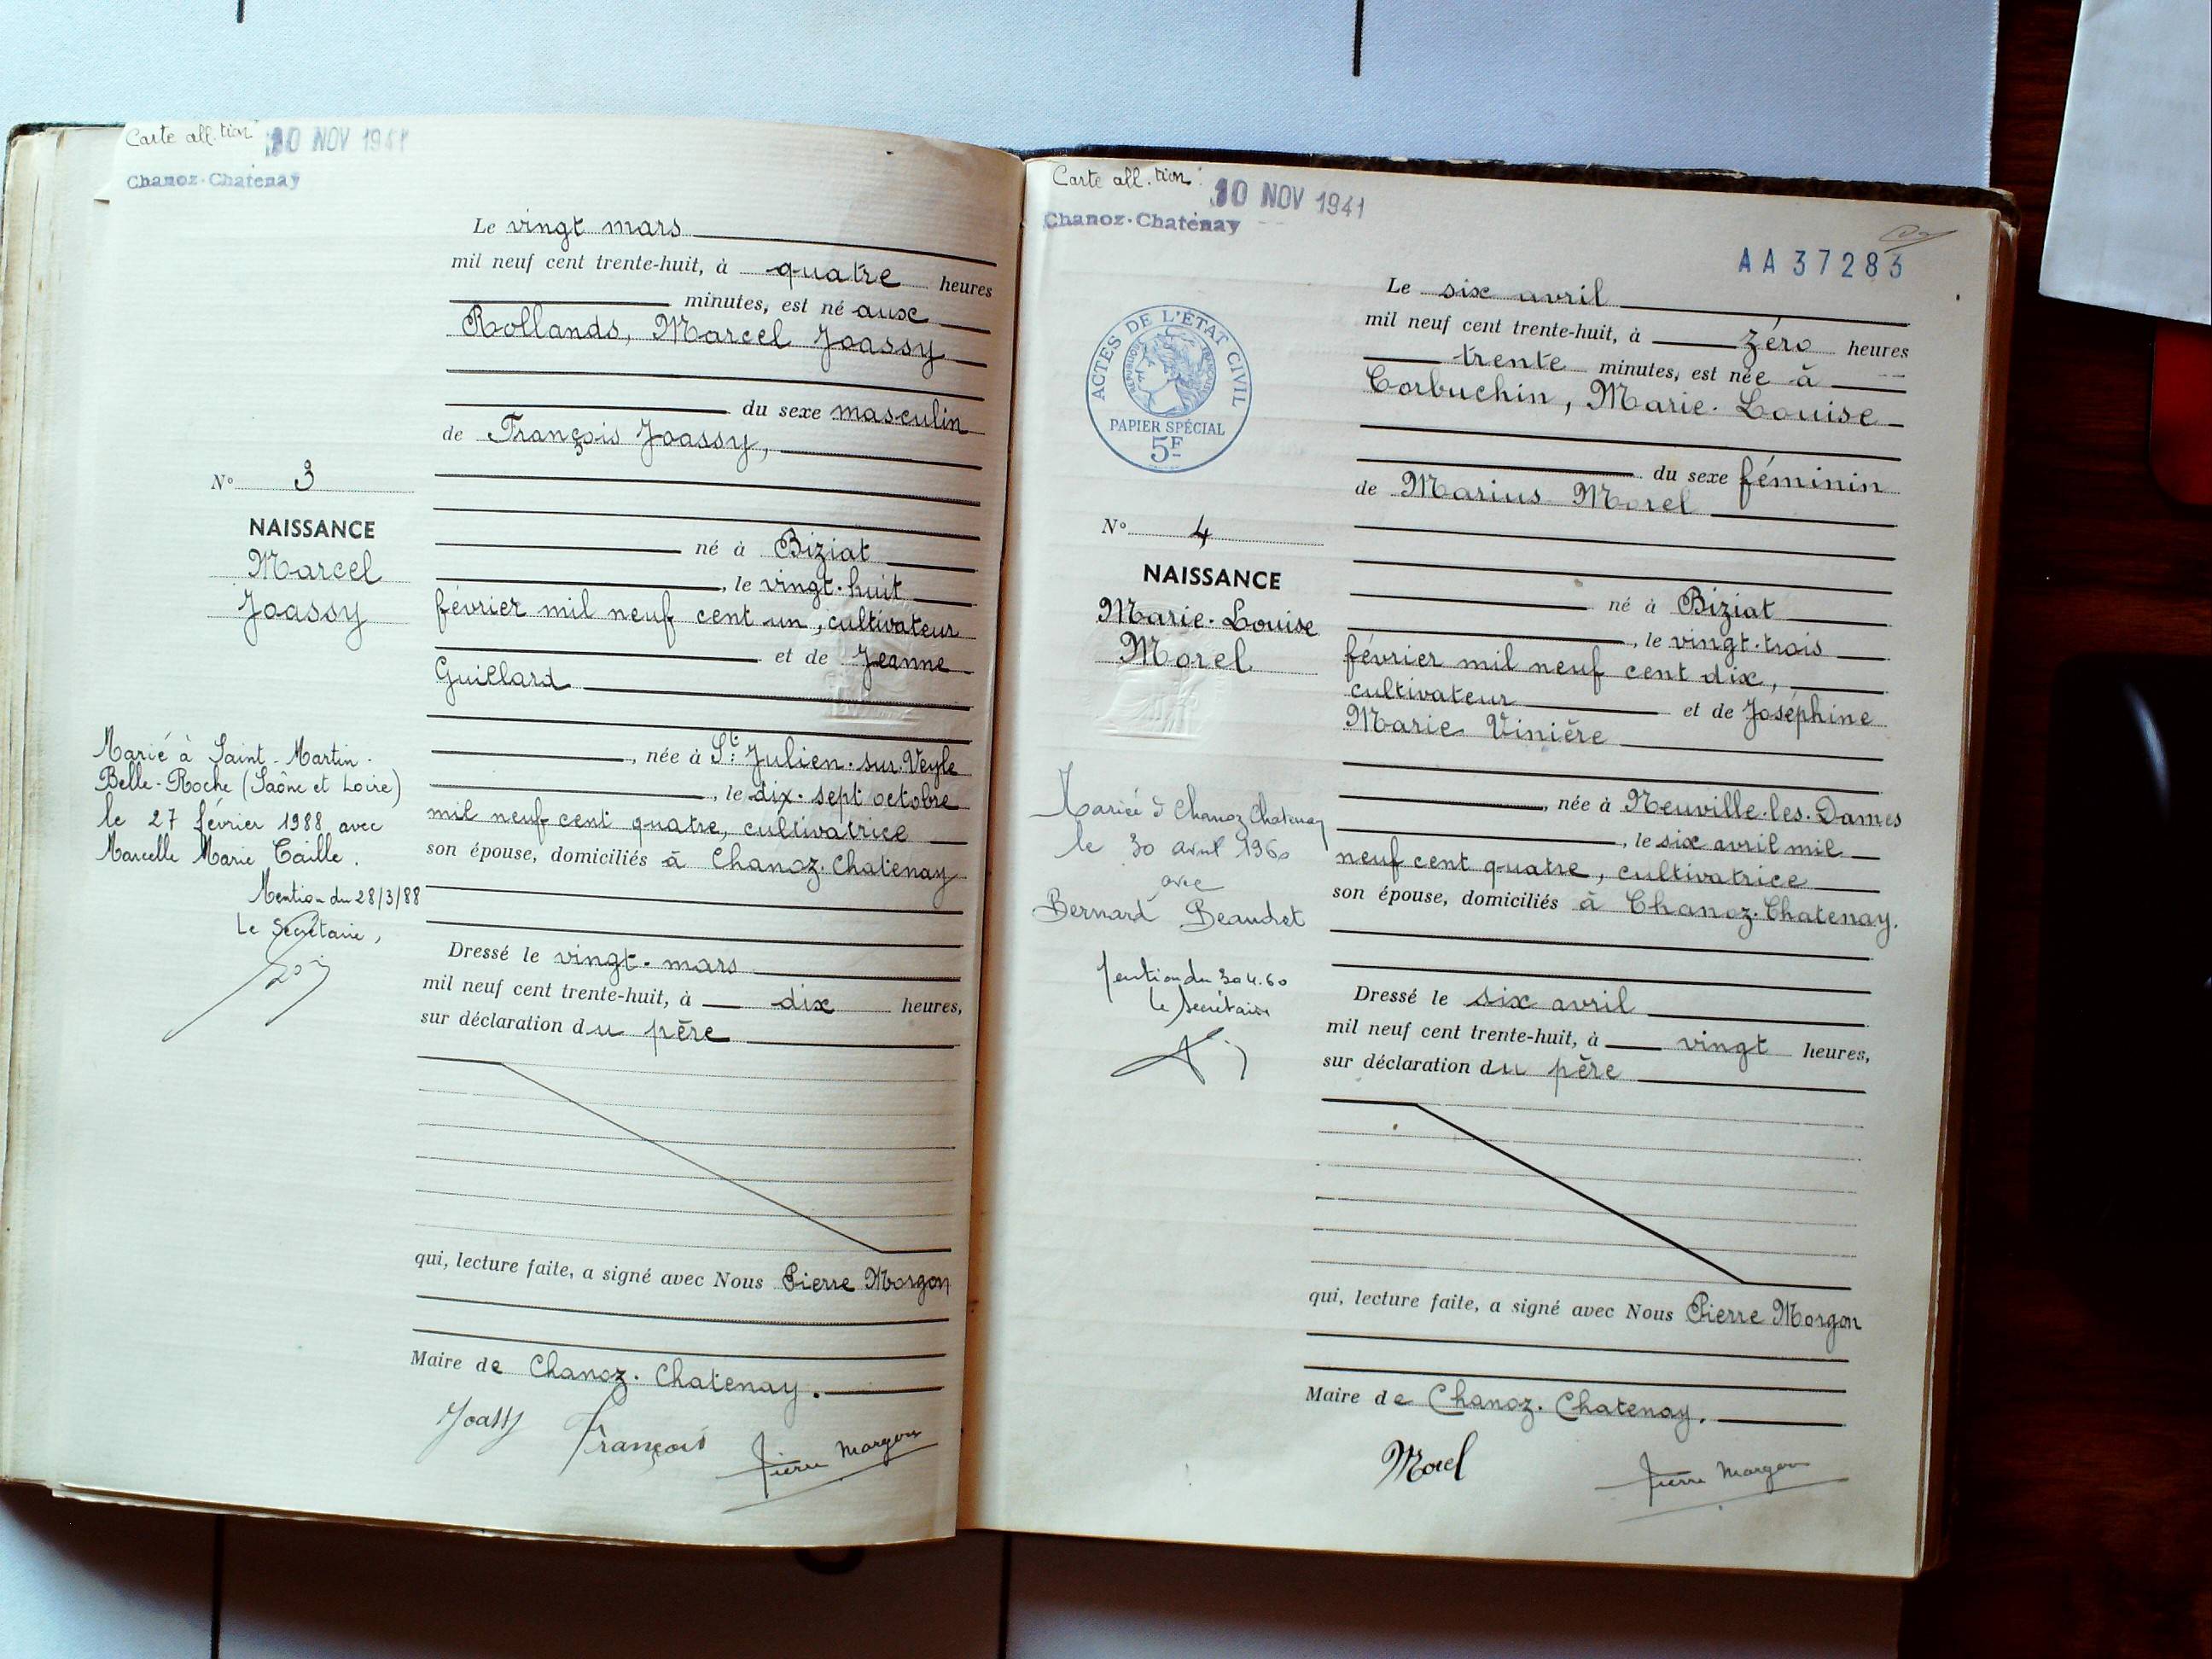 Carte all.tion 10 NOV 1941
Chanoz-Chatenay
Le vingt mars
mil neuf cent trente-huit, à quatre heures
minutes, est né aux
Rollands, Marcel Joassy
du sexe masculin
de François Joassy,
N° 3
NAISSANCE
Marcel
Joassy
né à Biziat
, le vingt-huit
février mil neuf cent un, cultivateur
et de Jeanne
Guillard
, née à St. Julien-sur-Veyle
, le dix-sept octobre
mil neuf cent quatre, cultivatrice
son épouse, domiciliés à Chanoz-Chatenay
Marié à Saint-Martin-
Belle-Roche (Saône et Loire)
le 27 février 1988 avec
Marcelle Marie Caille.
Mention du 28/3/88
Le Secrétaire,
Dressé le vingt-mars
mil neuf cent trente-huit, à dix heures,
sur déclaration du père
qui, lecture faite, a signé avec Nous Pierre Morgon
Maire de Chanoz-Chatenay.
Joassy François Pierre Morgon
Carte all.tion 10 NOV 1941
Chanoz-Chatenay
AA 37283
ACTES DE L'ÉTAT CIVIL
RÉPUBLIQUE FRANÇAISE
PAPIER SPÉCIAL
5F
Le six avril
mil neuf cent trente-huit, à zéro heures
trente minutes, est née à
Corbuchin, Marie-Louise
du sexe féminin
de Marius Morel
N° 4
NAISSANCE
Marie-Louise
Morel
né à Biziat
, le vingt-trois
février mil neuf cent dix,
cultivateur et de Joséphine
Marie Vinière
, née à Neuville-les-Dames
, le six avril mil
neuf cent quatre, cultivatrice
son épouse, domiciliés à Chanoz-Chatenay.
Mariée à Chanoz Chatenay
le 30 avril 1960
avec
Bernard Beaudet
Mention du 30.4.60
le Secrétaire
Dressé le six avril
mil neuf cent trente-huit, à vingt heures,
sur déclaration du père
qui, lecture faite, a signé avec Nous Pierre Morgon
Maire de Chanoz-Chatenay.
Morel Pierre Morgon